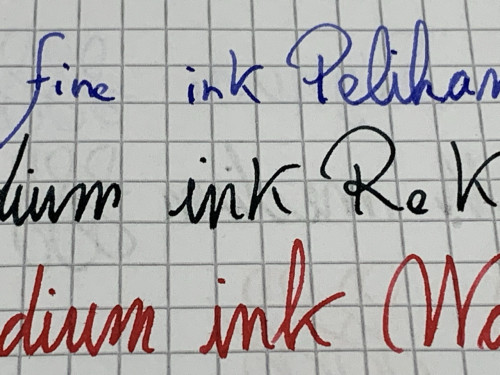 fine ink Pelikan
dium ink ReK
dium ink Wa